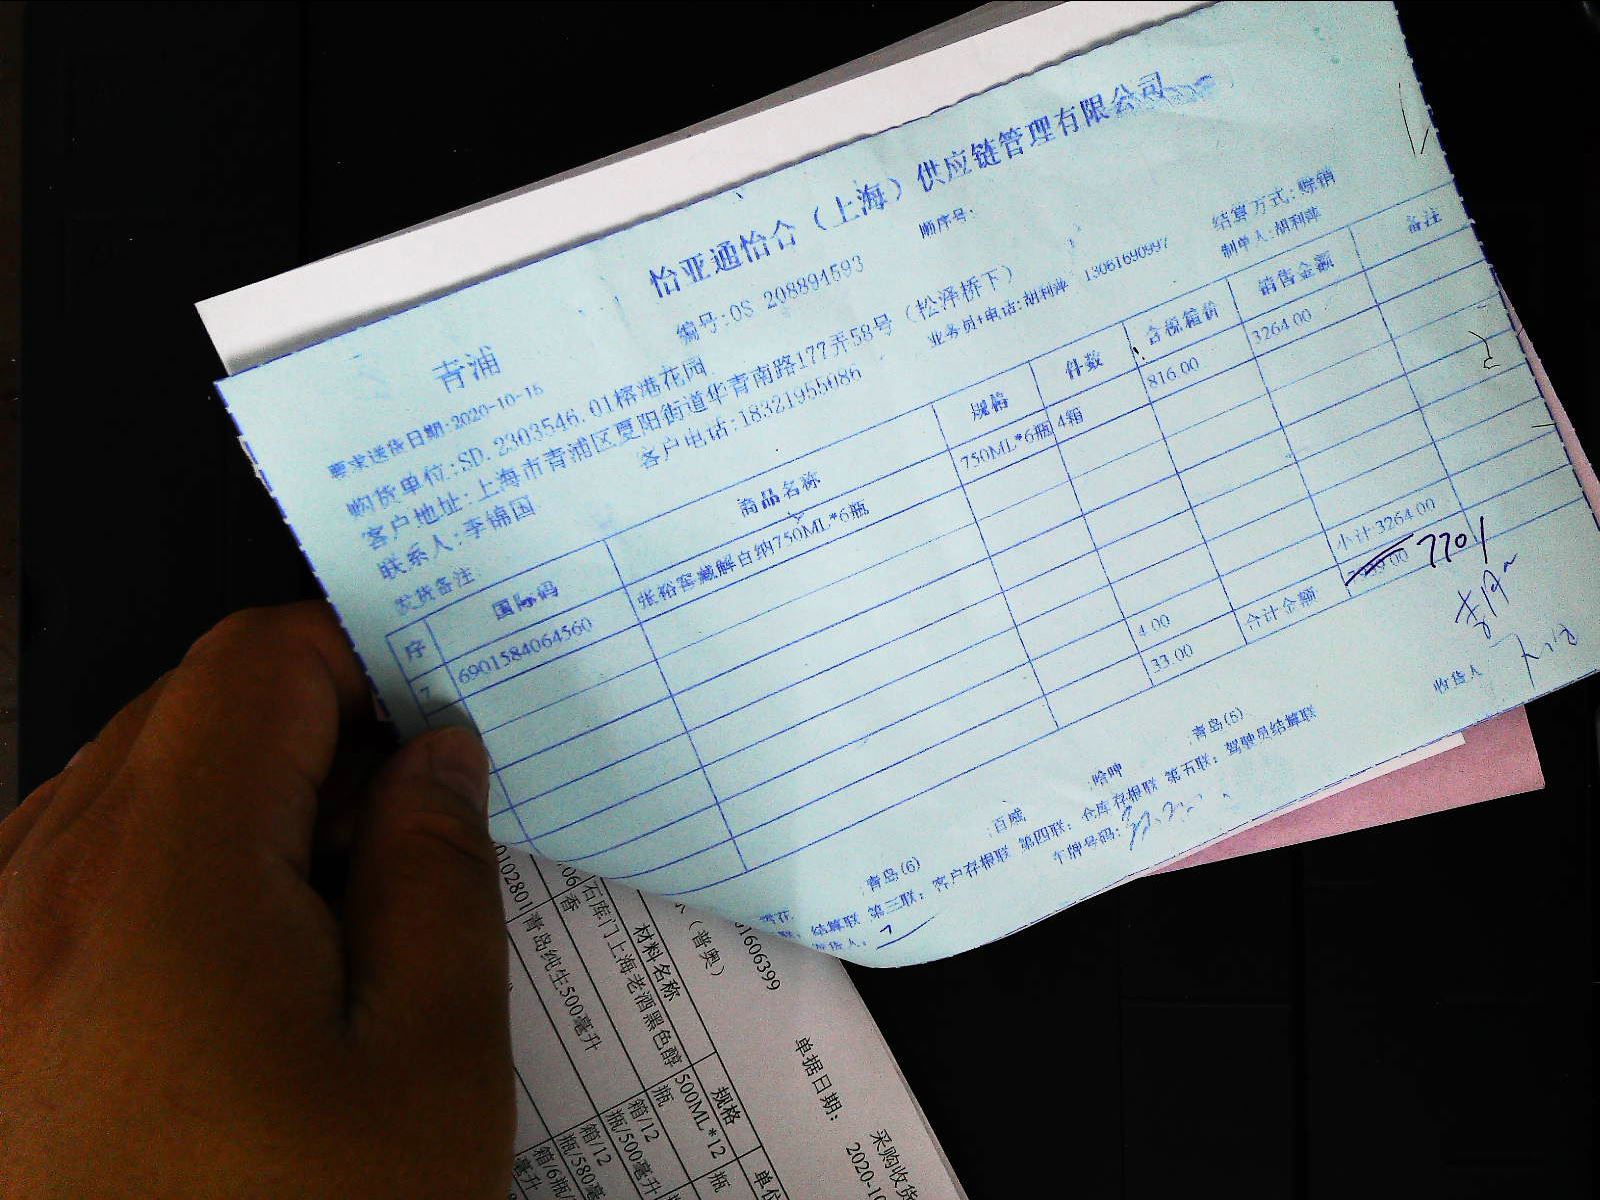 怡亚通怡合（上海）供应链管理有限公司
青浦
编号:OS 208894593
顺序号:
要求送货日期:2020-10-15
结算方式:赊销
购货单位:SD.2303546.01榕港花园
制单人:胡利萍
客户地址:上海市青浦区夏阳街道华青南路177弄58号（松泽桥下）
联系人:李锦国
客户电话:18321955086
业务员+电话:胡利萍 13061690997
发货备注
序 国际码 商品名称 规格 件数 含税箱价 销售金额 备注
7 6901584064560 张裕窖藏解百纳750ML*6瓶 750ML*6瓶 4箱 816.00 3264.00
4.00 小计 3264.00
33.00 合计金额 7701
青岛(6) 百威 哈啤 青岛(5)
结算联 第三联: 客户存根联 第四联: 仓库存根联 第五联: 驾驶员结算联
车牌号码:
收货人
采购收货
单据日期: 2020-10
1606399
（普奥）
材料名称 规格 单位
石库门上海老酒黑色醇 500ML*12 瓶
香
青岛纯生500毫升
箱/12
瓶/500毫升
箱/12
瓶/580毫
箱/6瓶